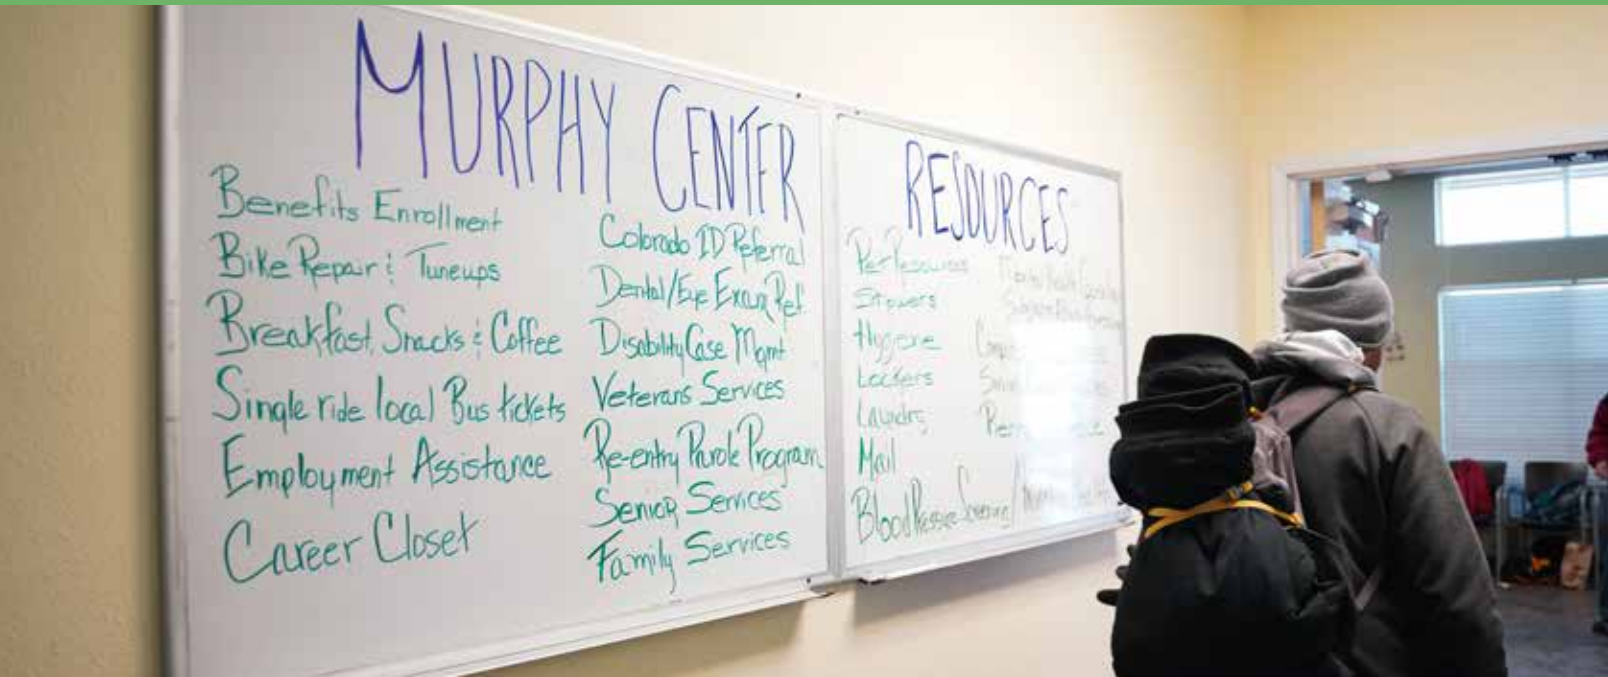 MURPHY CENTER
Benefits Enrollment
Bike Repair & Tuneups
Breakfast, Snacks & Coffee
Single ride local Bus tickets
Employment Assistance
Career Closet
Colorado ID Referral
Dental/Eye Exam Ref.
Disability Case Mgmt
Veterans Services
Re-entry Parole Program
Senior Services
Family Services
RESOURCES
Pet Resources
Showers
Hygiene
Lockers
Laundry
Mail
Blood Pressure Screening/
Mental Health